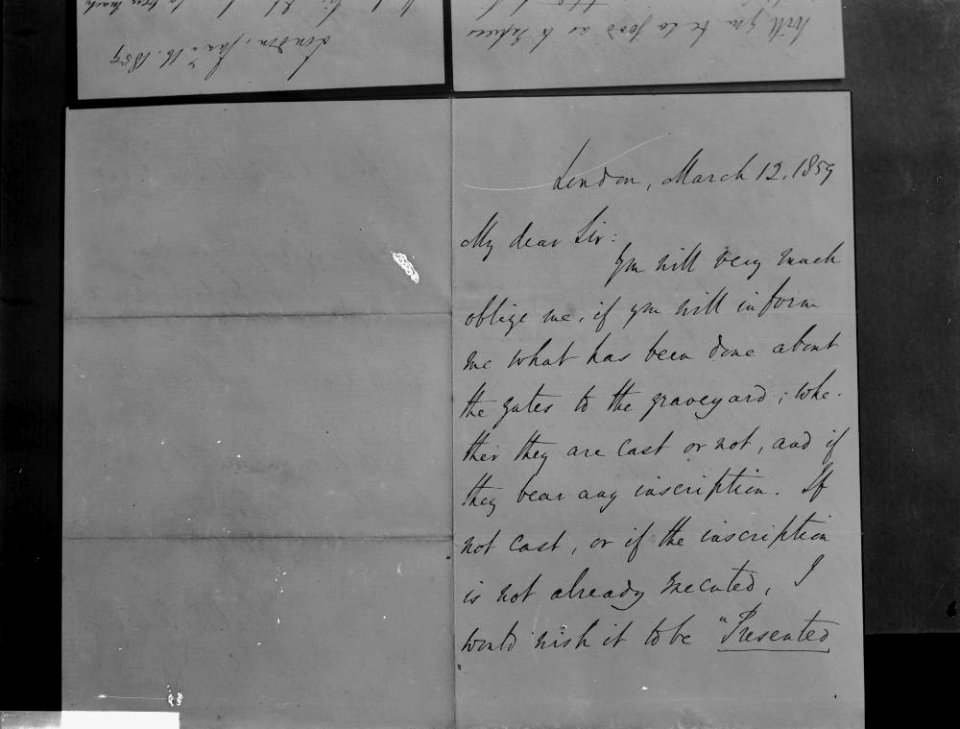 London, Jan. 16. 1859
will you be so good as to express
London, March 12. 1859
My dear Sir:
You will very much
oblige me, if you will inform
me what has been done about
the gates to the graveyard; whe-
ther they are cast or not, and if
they bear any inscription. If
not cast, or if the inscription
is not already executed, I
would wish it to be "Presented